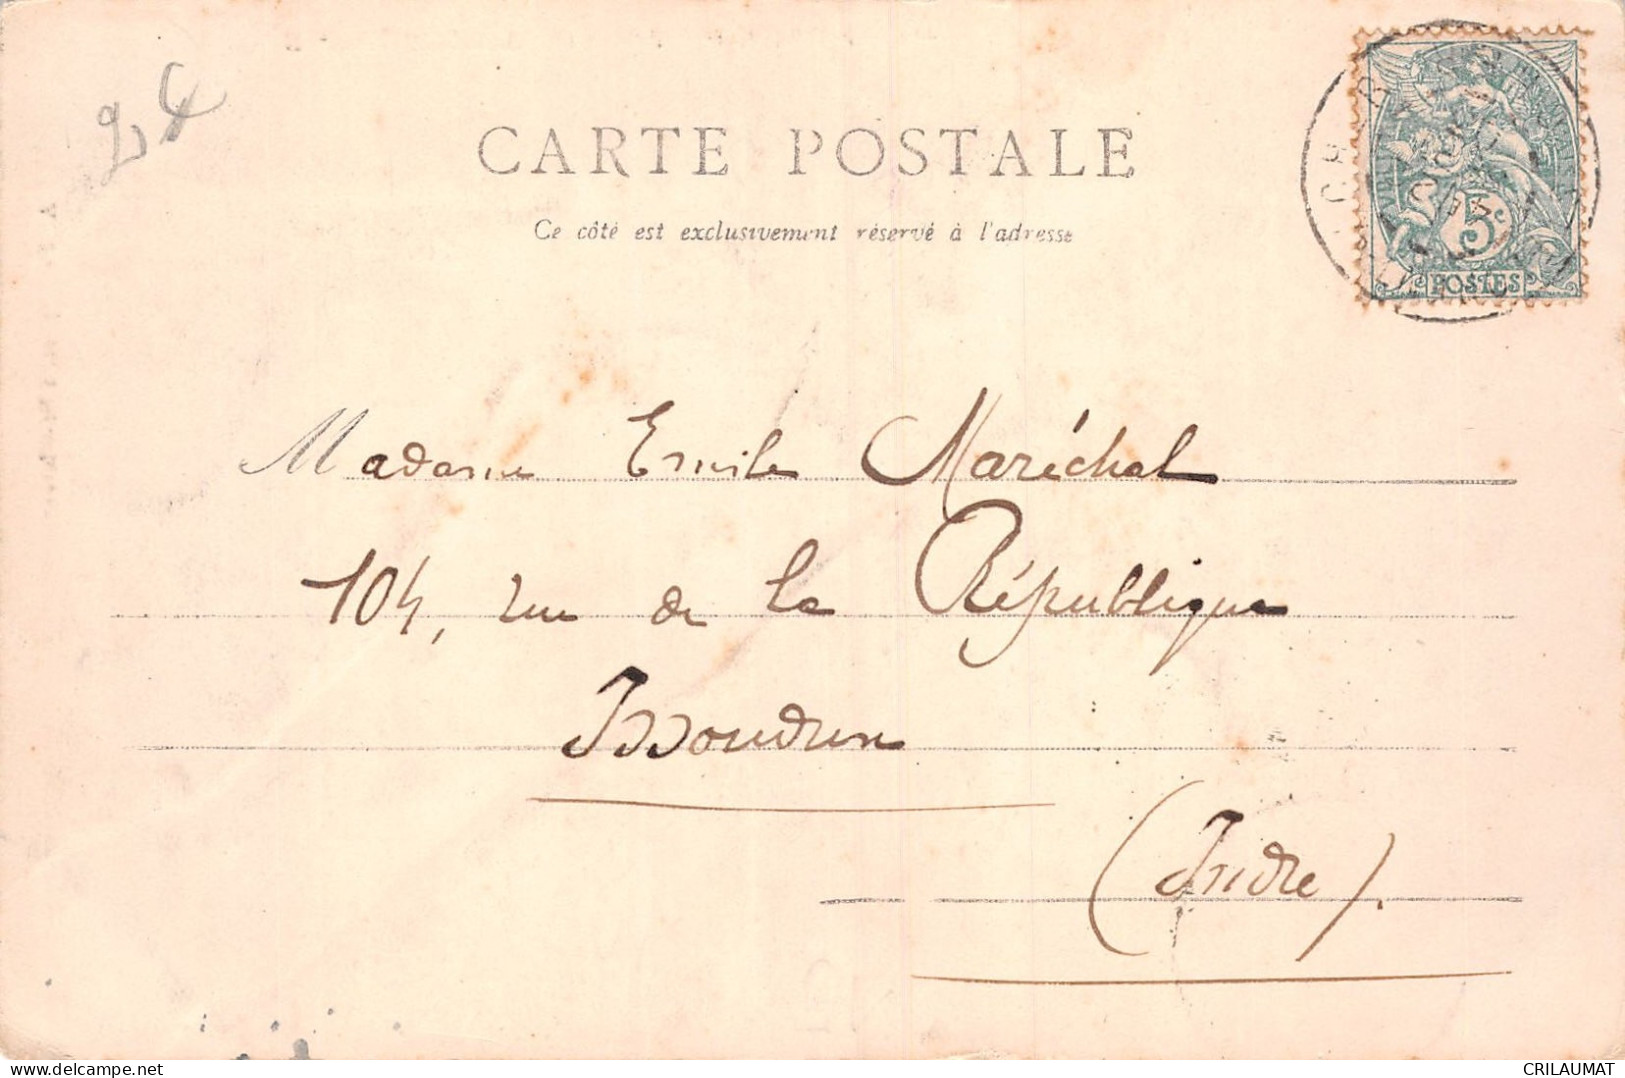 CARTE POSTALE
Ce côté est exclusivement réservé à l'adresse
5c
POSTES
Madame Emile Maréchal
104, rue de la République
Issoudun
(Indre).
CRILAUMAT